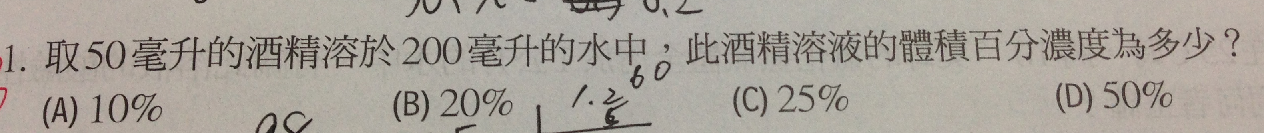 1. 取50毫升的酒精溶於200毫升的水中，此酒精溶液的體積百分濃度為多少？
60
(A) 10% (B) 20% (C) 25% (D) 50%